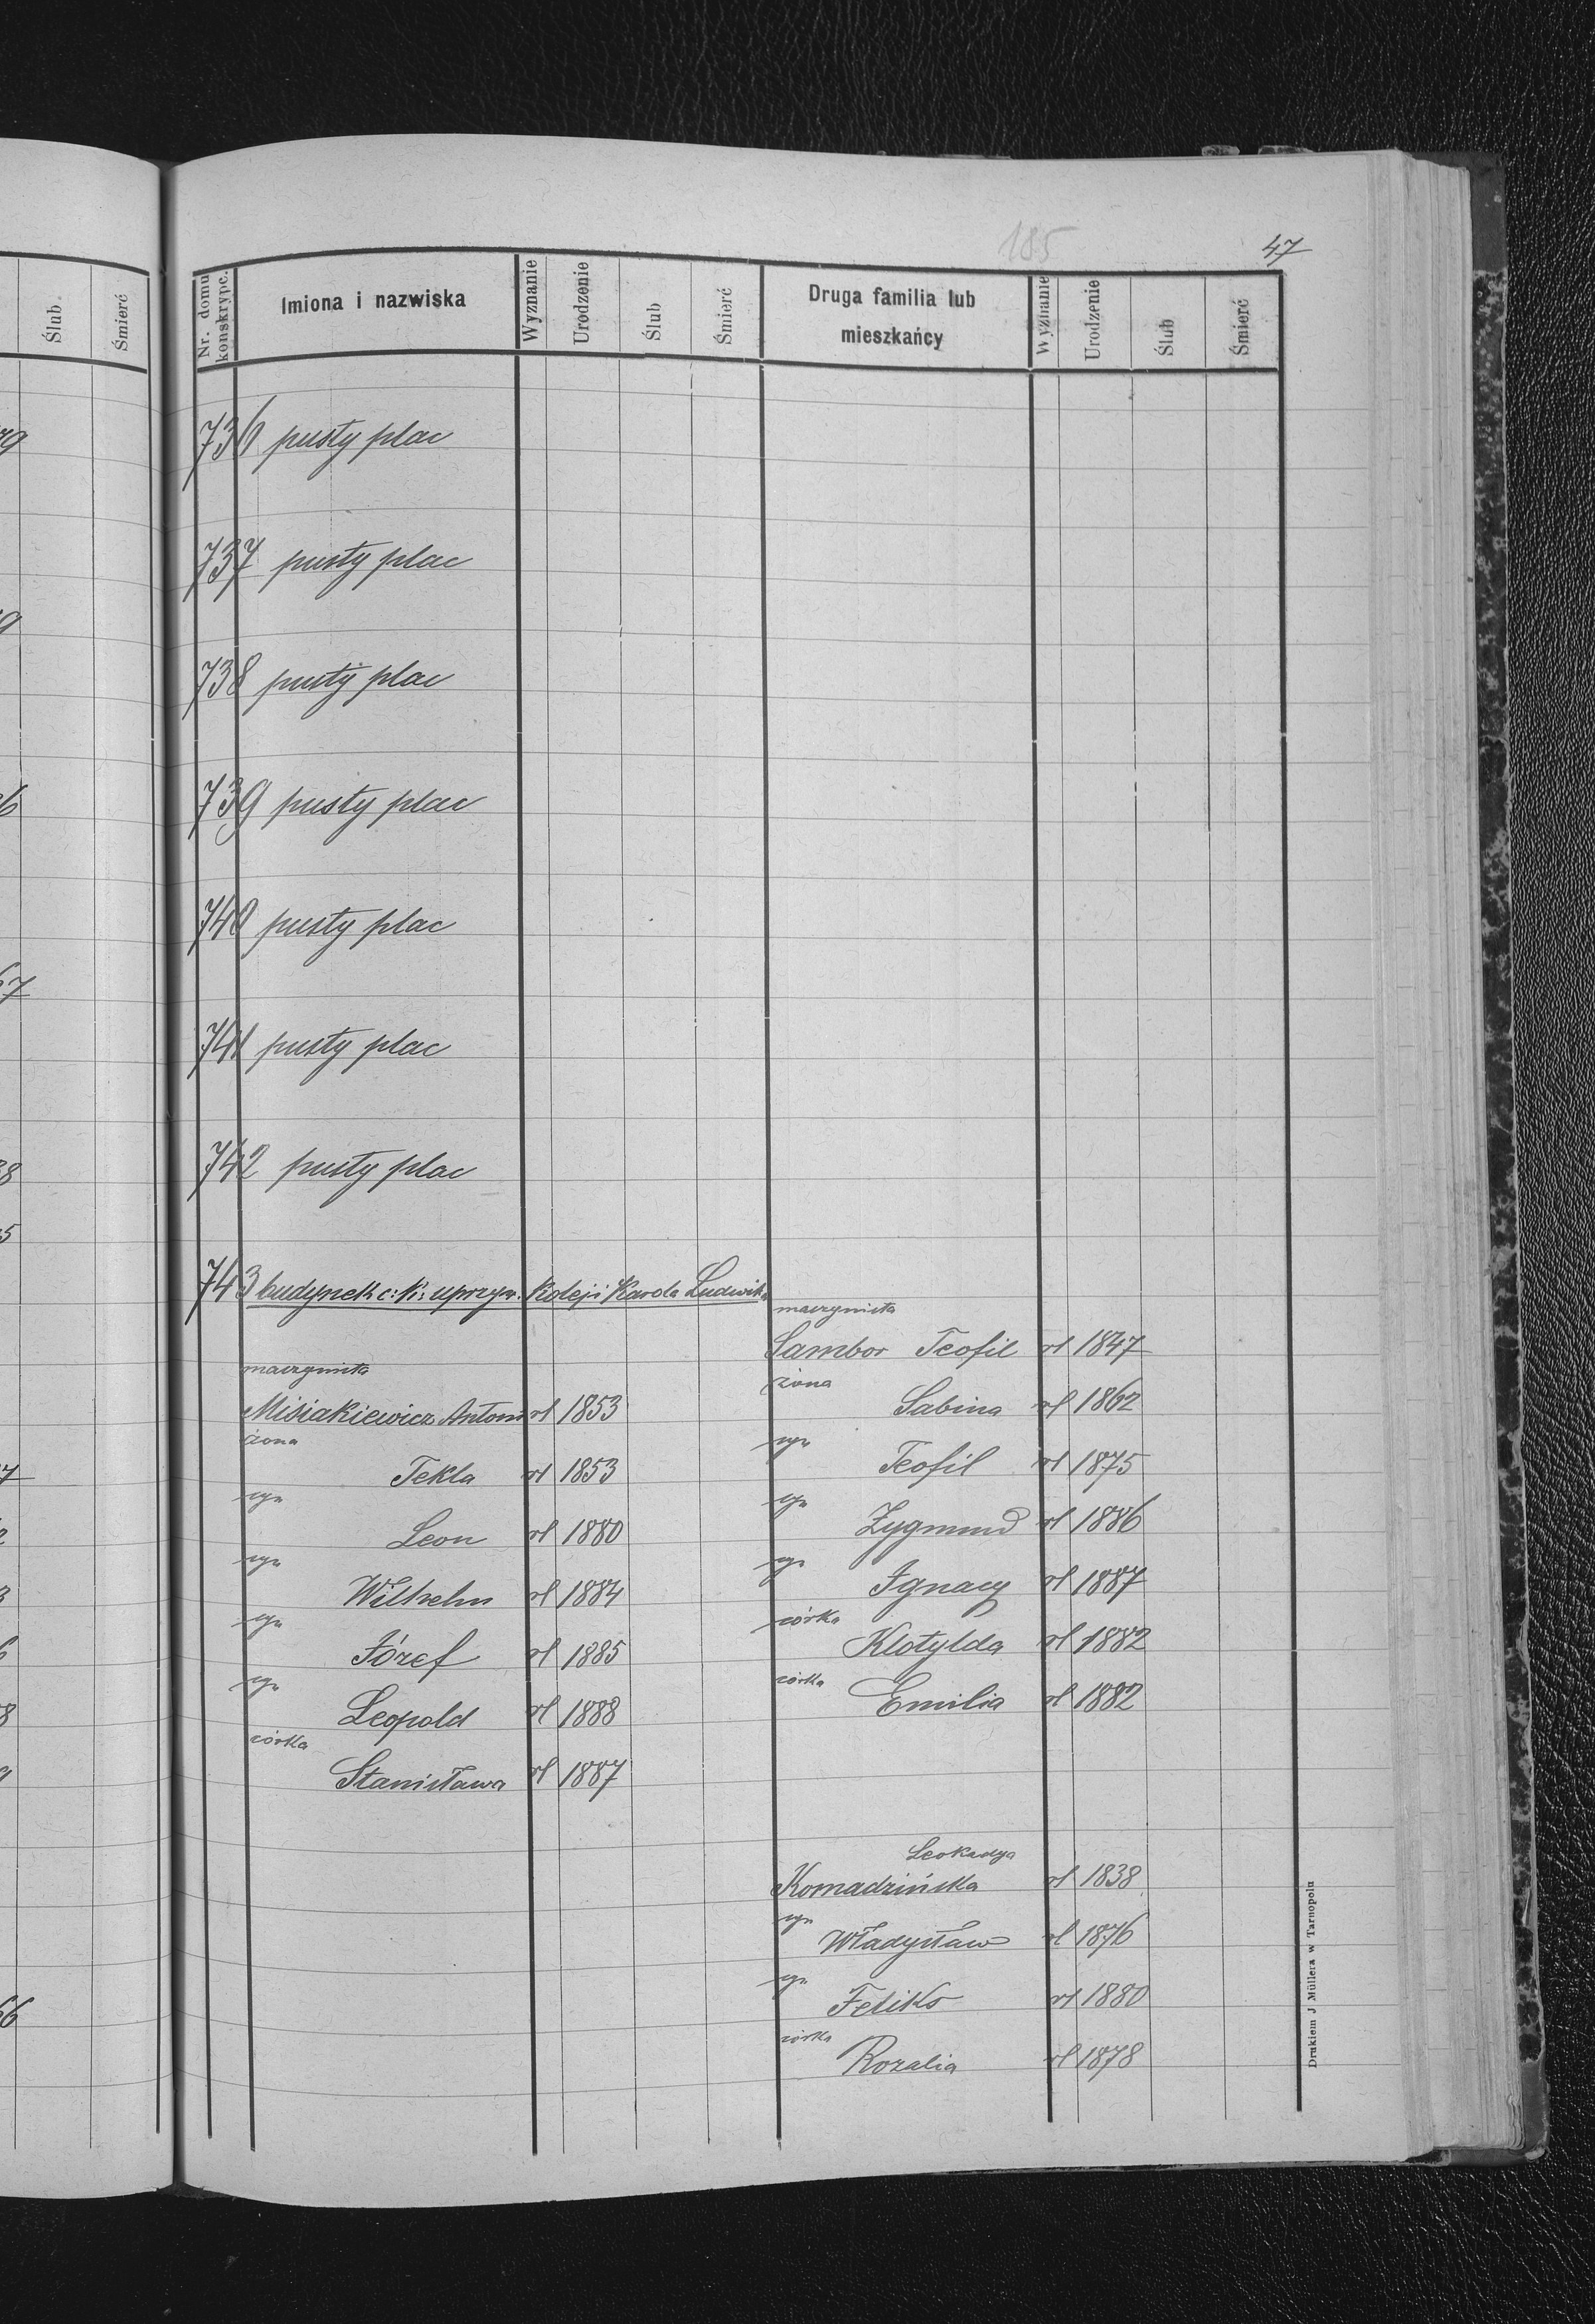 185
47
Ślub
Śmierć
Nr. domu konskrypc.
Imiona i nazwiska
Wyznanie
Urodzenie
Ślub
Śmierć
Druga familia lub mieszkańcy
Wyznanie
Urodzenie
Ślub
Śmierć
736 pusty plac
737 pusty plac
738 pusty plac
739 pusty plac
740 pusty plac
741 pusty plac
742 pusty plac
743 budynek c: k: uprzyw. Koleji Karola Ludwika
maszynista
Misiakiewicz Antoni rł 1853
żona
Tekla rł 1853
syn
Leon rł 1880
syn
Wilhelm rł 1884
syn
Józef rł 1885
syn
Leopold rł 1888
córka
Stanisława rł 1887
maszynista
Sambor Teofil rł 1847
żona
Sabina rł 1862
syn
Teofil rł 1875
syn
Zygmund rł 1886
syn
Ignacy rł 1887
córka
Klotylda rł 1882
córka
Emilia rł 1882
Leokadya
Komadzińska rł 1838
syn
Władysław rł 1876
syn
Feliks rł 1880
córka
Rozalia rł 1878
Drukiem J Müllera w Tarnopolu